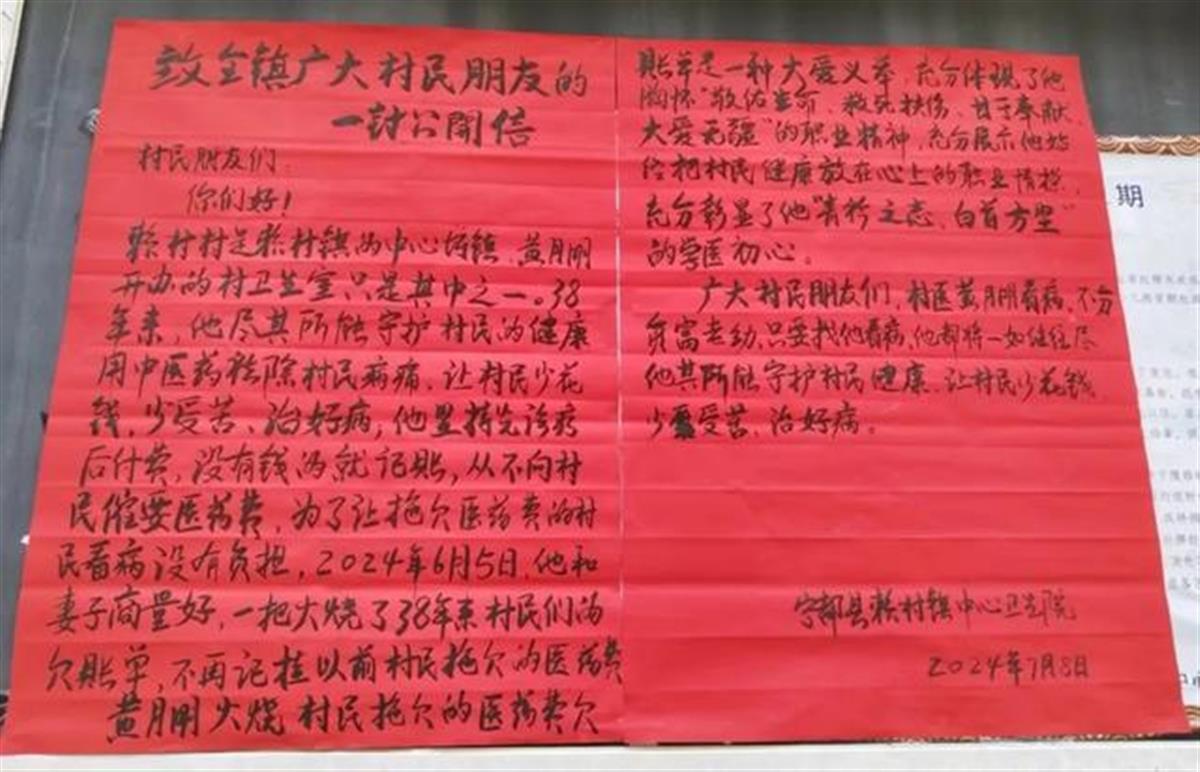 致全镇广大村民朋友的
一封公開信
村民朋友们:
你们好!
赖村村是赖村镇的中心圩镇,黄月朋
开办的村卫生室只是其中之一。38
年来,他尽其所能守护村民的健康
用中医药祛除村民病痛,让村民少花
钱,少受苦、治好病,他坚持先诊疗
后付费,没有钱的就记账,从不向村
民催要医药费,为了让拖欠医药费的村
民看病没有负担,2024年6月5日,他和
妻子商量好,一把火烧了38年来村民们的
欠账单,不再记挂以前村民拖欠的医药费
黄月朋火烧村民拖欠的医药费欠
账单是一种大爱义举,充分体现了他
胸怀"敬佑生命、救死扶伤、甘于奉献
大爱无疆"的职业精神,充分展示他始
终把村民健康放在心上的职业情操,
充分彰显了他"青衿之志、白首方坚"
的学医初心。
广大村民朋友们,村医黄月朋看病,不分
贫富老幼,只要找他看病,他都将一如继往尽
他其所能守护村民健康、让村民少花钱、
少受苦、治好病。
宁都县赖村镇中心卫生院
2024年7月8日
期